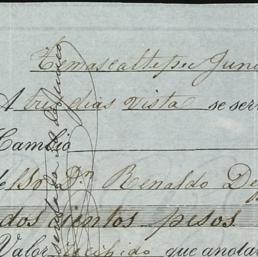 Temascaltepec Juni
A tres dias vista se ser
Cambio
Dn Renaldo De
dos cientos pesos
Valor recibido que anotar